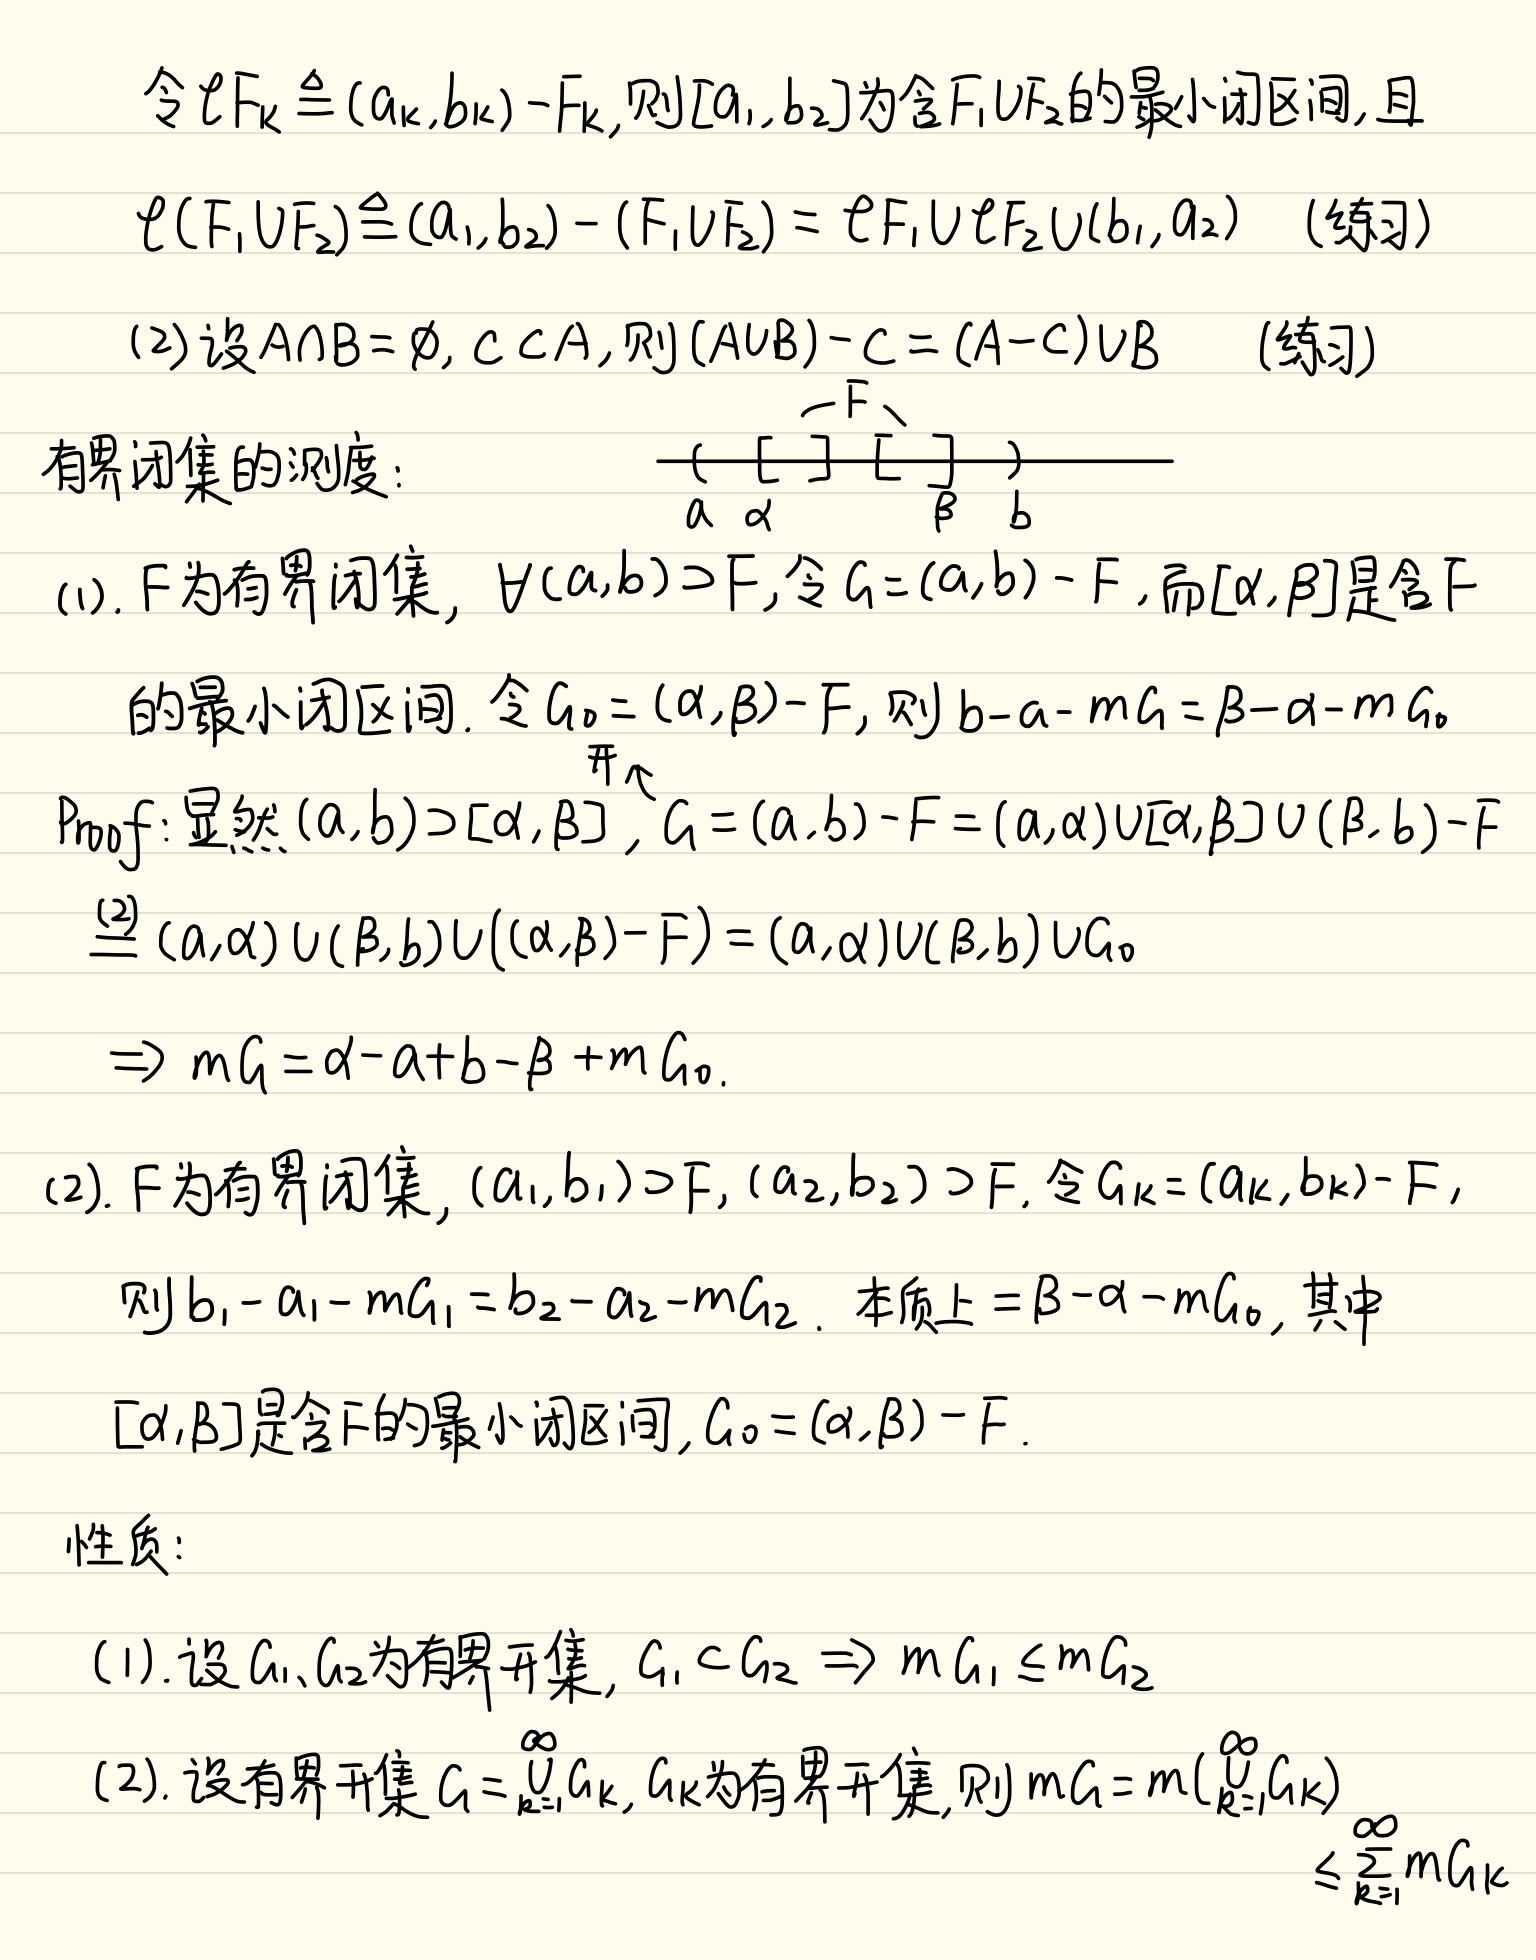 令 𝒞F_k ≜ (a_k, b_k) - F_k, 则[a₁, b₂]为含F₁∪F₂的最小闭区间, 且
𝒞(F₁∪F₂) ≜ (a₁, b₂) - (F₁∪F₂) = 𝒞F₁∪𝒞F₂∪(b₁, a₂) (练习)
(2) 设A∩B = ∅, C⊂A, 则(A∪B) - C = (A-C)∪B (练习)
F
有界闭集的测度: ( [ ] [ ] )
a α β b
(1). F为有界闭集, ∀(a,b)⊃F, 令G = (a,b) - F, 而[α, β]是含F
的最小闭区间. 令G₀ = (α,β) - F, 则 b-a-mG = β-α-mG₀
开↖
Proof: 显然(a,b)⊃[α,β], G = (a,b) - F = (a,α)∪[α,β]∪(β,b) - F
(2)
= (a,α)∪(β,b)∪((α,β)-F) = (a,α)∪(β,b)∪G₀
⇒ mG = α-a+b-β+mG₀.
(2). F为有界闭集, (a₁,b₁)⊃F, (a₂,b₂)⊃F. 令G_k = (a_k,b_k) - F,
则b₁-a₁-mG₁ = b₂-a₂-mG₂. 本质上 = β-α-mG₀, 其中
[α,β]是含F的最小闭区间, G₀ = (α,β) - F.
性质:
(1). 设G₁、G₂为有界开集, G₁⊂G₂ ⇒ mG₁ ≤ mG₂
(2). 设有界开集 G = ∞∪k=1 G_k, G_k为有界开集, 则 mG = m(∞∪k=1 G_k)
≤ ∞∑k=1 mG_k